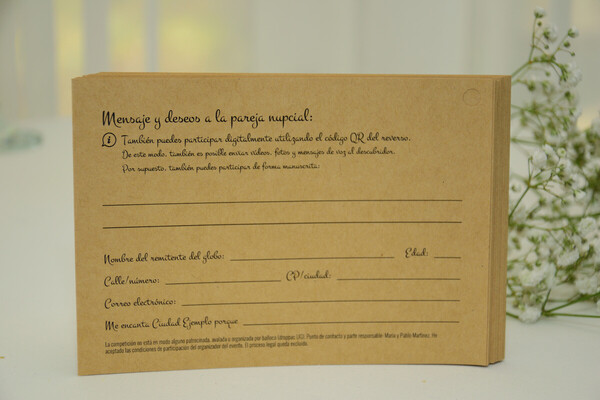 Mensaje y deseos a la pareja nupcial:
i También puedes participar digitalmente utilizando el código QR del reverso.
De este modo, también es posible enviar vídeos, fotos y mensajes de voz al descubridor.
Por supuesto, también puedes participar de forma manuscrita:
Nombre del remitente del globo: Edad:
Calle/número: CP/ciudad:
Correo electrónico:
Me encanta Ciudad Ejemplo porque
La competición se está mi modo alguno patrocinada, avalada u organizada por balloni (diseppas UG). Punto de contacto y parte responsable: María y Pablo Martínez. He
aceptado las condiciones de participación del organizador del evento. El proceso legal queda excluido.